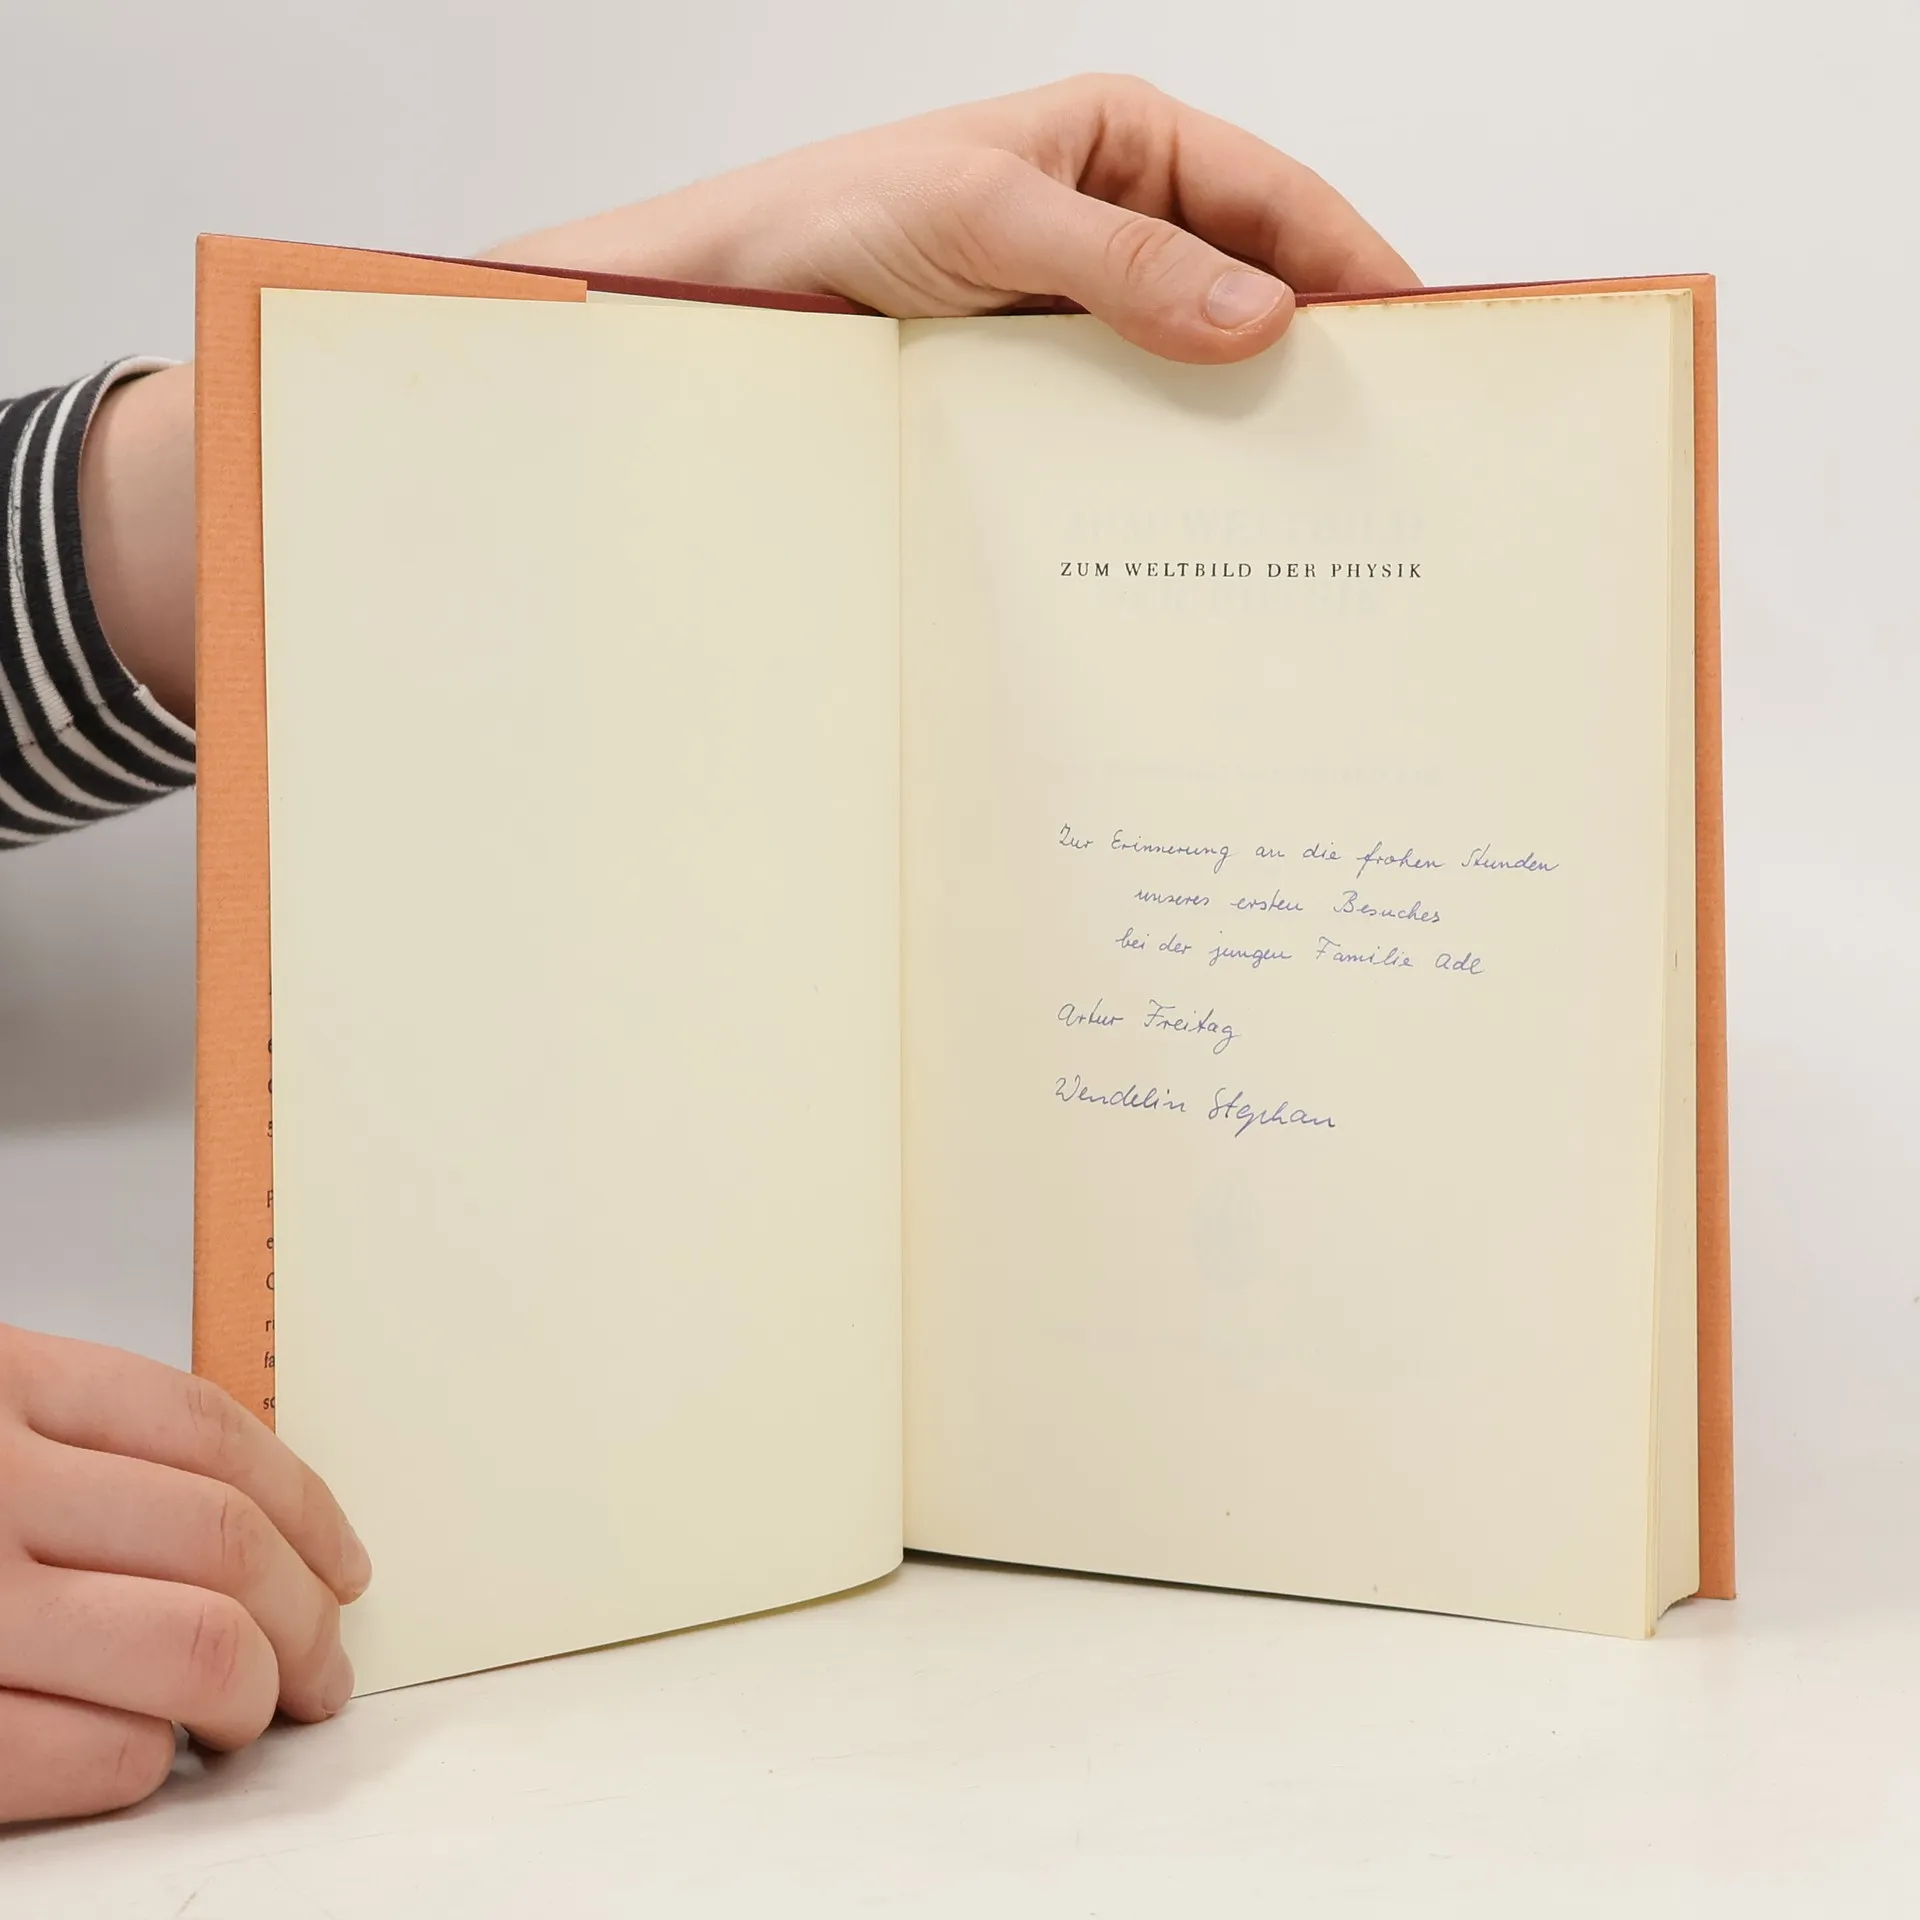 ZUM WELTBILD DER PHYSIK
Zur Erinnerung an die frohen Stunden
unseres ersten Besuches
bei der jungen Familie Ade
Artur Freitag
Wendelin Stephan